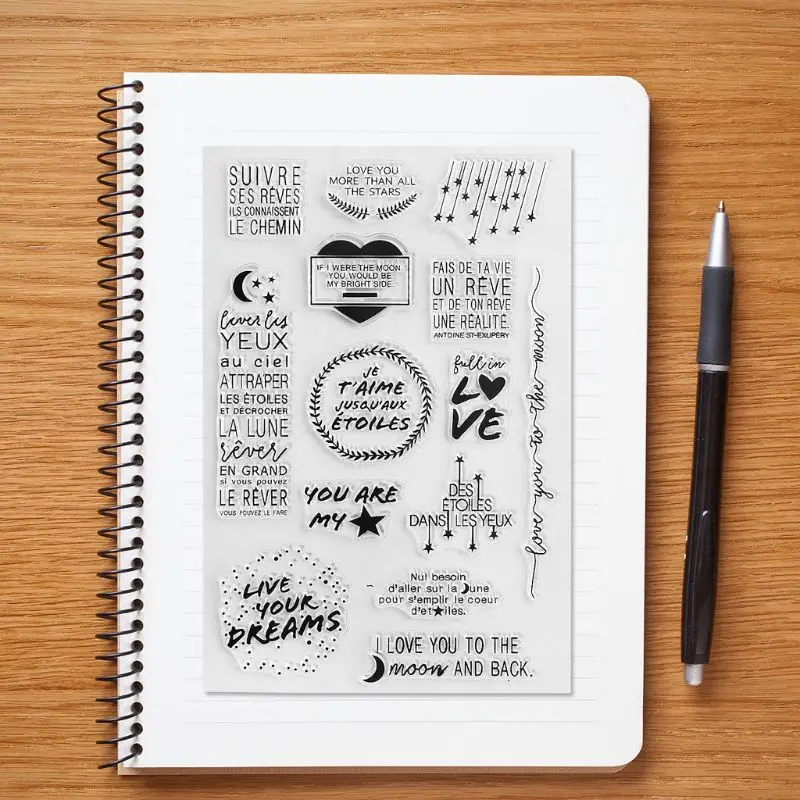 SUIVRE
SES RÊVES
ILS CONNAISSENT
LE CHEMIN
LOVE YOU
MORE THAN ALL
THE STARS
IF I WERE THE MOON
YOU WOULD BE
MY BRIGHT SIDE.
FAIS DE TA VIE
UN RÊVE
ET DE TON RÊVE
UNE RÉALITÉ.
ANTOINE ST-EXUPERY
lever les
YEUX
au ciel
ATTRAPER
LES ÉTOILES
ET DÉCROCHER
LA LUNE
rêver
EN GRAND
si vous pouvez
LE RÊVER
VOUS POUVEZ LE FAIRE
JE
T'AIME
JUSQU'AUX
ÉTOILES
full in
LOVE
love you to the moon
YOU ARE
MY
DES
ÉTOILES
DANS LES YEUX
LIVE
YOUR
DREAMS
Nul besoin
d'aller sur la lune
pour s'emplir le coeur
d'etoiles.
I LOVE YOU TO THE
moon AND BACK.